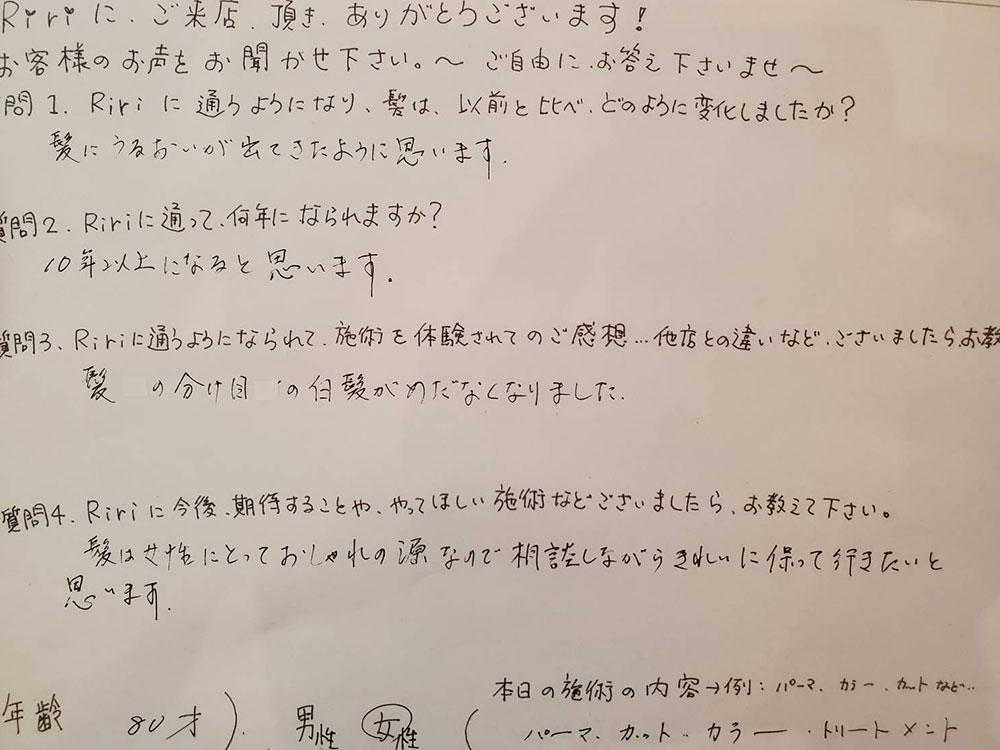 Ririに、ご来店、頂き、ありがとうございます!
お客様のお声をお聞かせ下さい。〜ご自由に、お答え下さいませ〜
問1. Ririに通うようになり、髪は、以前と比べ、どのように変化しましたか?
髪にうるおいが出てきたように思います.
質問2. Ririに通って、何年になられますか?
10年以上になると思います.
質問3、Ririに通うようになられて、施術を体験されてのご感想…他店との違いなど、ございましたら、お教
髪の分け目の白髪がめだなくなりました.
質問4. Ririに今後、期待することや、やってほしい施術などございましたら、お教えて下さい。
髪は女性にとっておしゃれの源なので相談しながらきれいに保って行きたいと
思います.
本日の施術の内容→例:パーマ、カラー、カットなど..
年齢 80才) 男性 女性 (パーマ、カット、カラー、トリートメント